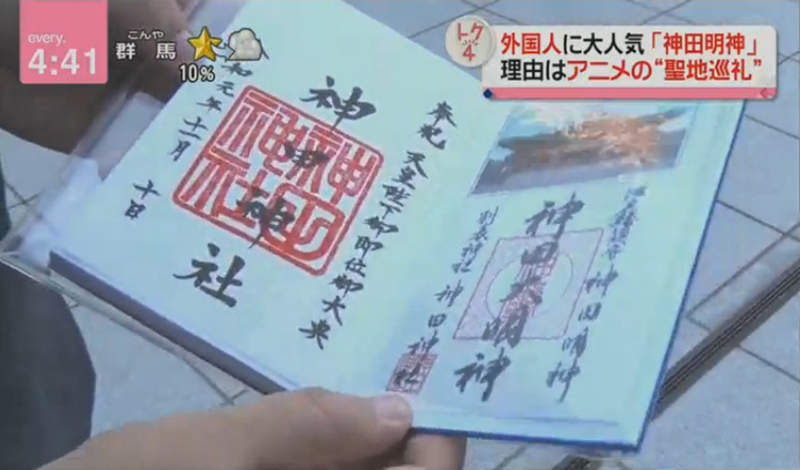 every.
4:41
こんや
群馬
10%
トク
4
外国人に大人気「神田明神」
理由はアニメの“聖地巡礼”
江戸総鎮守 神田明神
神田大明神
別表神社 神田神社
奉祝 天皇陛下御即位御大典
神田神社
令和元年十一月十日